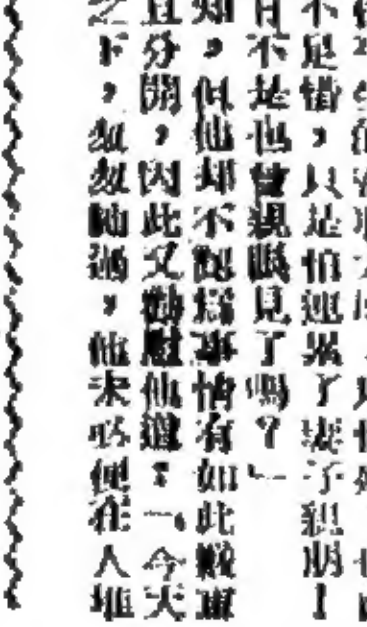 不是惜，只是怕連累了妻子親朋！
日不是也曾親眼見了嗎？」
知，但他却不認爲事情有如此嚴重
且分開，因此又勸慰他道：「今天
之下，匆匆馳過，他未必便在人堆